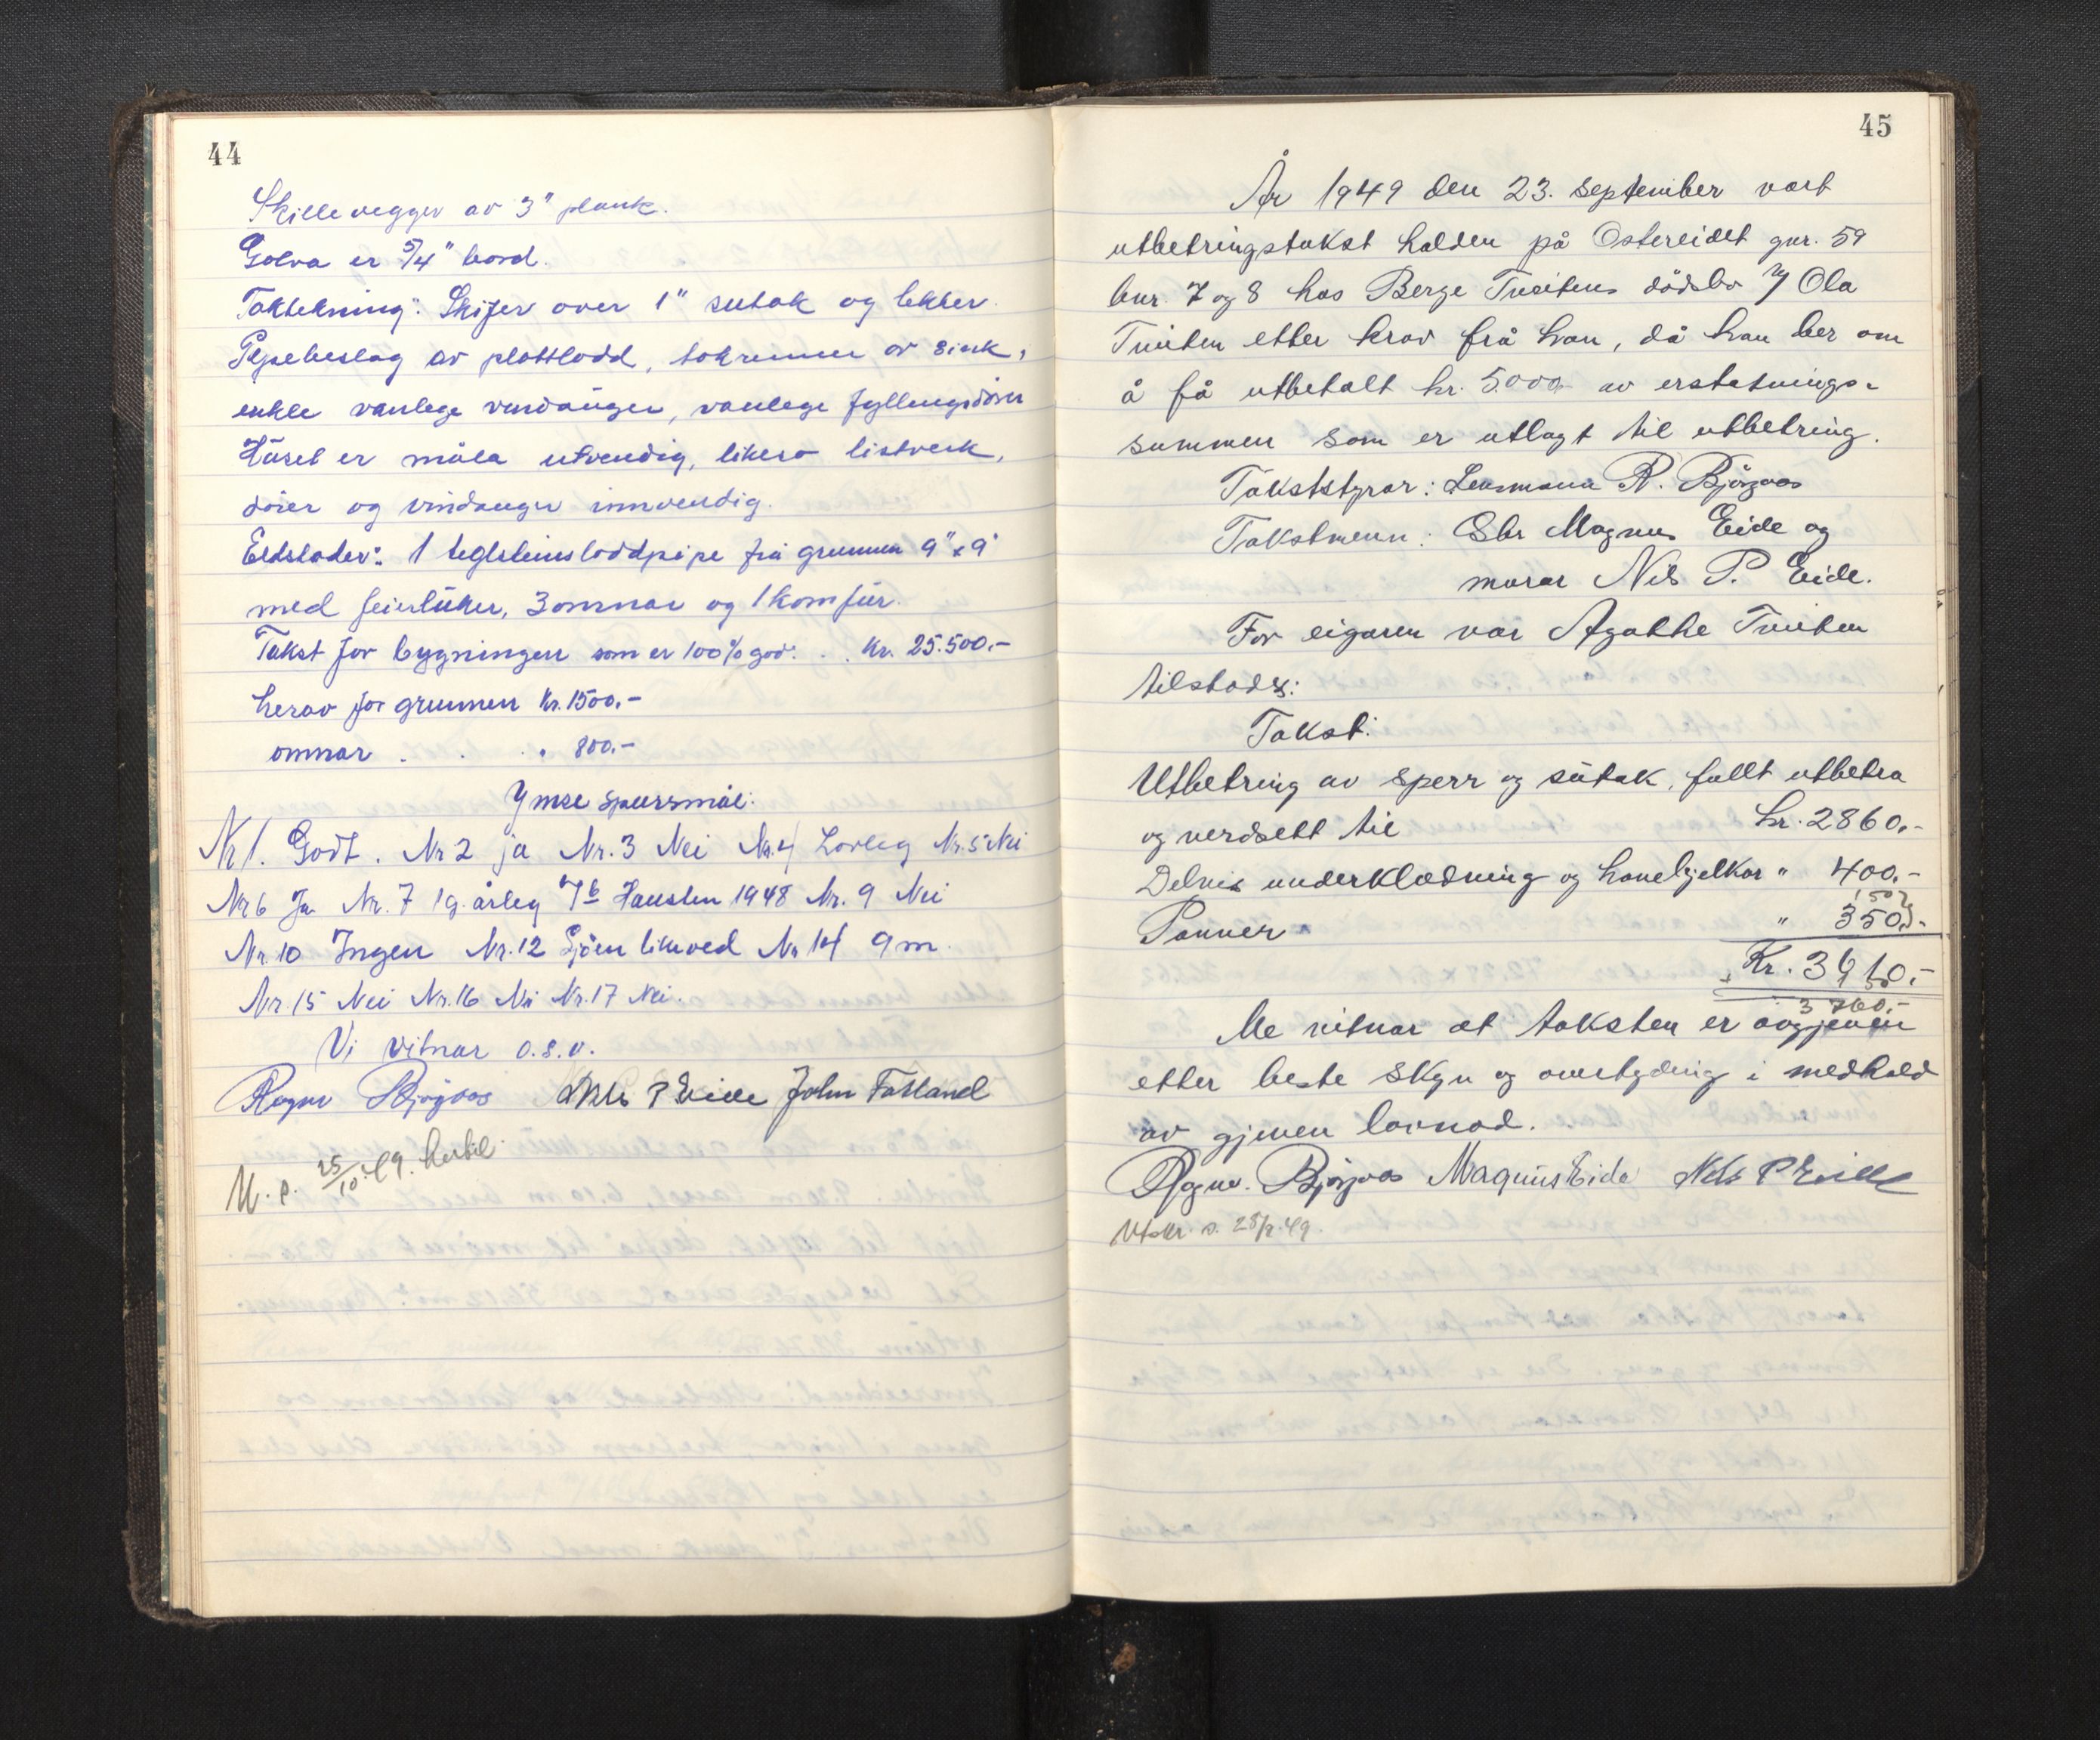 44
Skillevegger av 3" plank.
Golva er 5/4" bord.
Taktekning: Skifer over 1" sutak og lekter.
Pipebeslag av plattlodd, takrenner av sink,
enkle vanlege vindauger, vanlege fyllingsdører
Huset er måla utvendig, likeso listverk,
dører og vindauger innvendig.
Eldstader: 1 teglsteinsloddpipe frå grunnen 9"x9"
med feierluker, 3 omnar og 1 komfur.
Takst for bygningen som er 100% god. . . Kr. 25.500.-
herav for grunnen Kr. 1500.-
omnar . . . " 800.-
Ymse spursmål:
Nr 1. Godt. Nr 2 ja Nr. 3 Nei Nr. 4 Lovleg Nr. 5 Nei
Nr 6 Ja Nr. 7 1 g. årleg 7b Hausten 1948 Nr. 9 Nei
Nr. 10 Ingen Nr. 12 Sjøen likeved Nr 14 9 m.
Nr. 15 Nei Nr. 16 Nei Nr. 17 Nei.
Vi vitnar o.s.v.
Ragnv Bjørgaas Nils P Eide John Fatland
U. p. 25/10.49. hertil.
45
År 1949 den 23. september vart
utbetringstakst halden på Ostereidet gnr. 59
bnr. 7 og 8 hos Berge Tveitens dødsbo v/ Ola
Tveiten etter krav frå han, då han ber om
å få utbetalt kr. 5000 av erstatnings-
summen som er utlagt til utbetring.
Takststyrar: Lensmann R. Bjørgaas
Takstmenn: Sbr Magnus Eide og
murar Nils P. Eide.
For eigaren var Agathe Tveiten
tilstades:
Takst:
Utbetring av sperr og sutak, fullt utbetra
og verdsett til kr. 2860.-
Delvis underklædning og hanebjelkar " 400.-
Panner " 350.-
Kr. 3610.-
3760.-
Me vitnar at taksten er avgjeven
etter beste skyn og overtyding i medhald
av gjeven lovnad.
Ragnv. Bjørgaas Magnus Eide Nils P Eide
Utskr. s. 28/9.49.